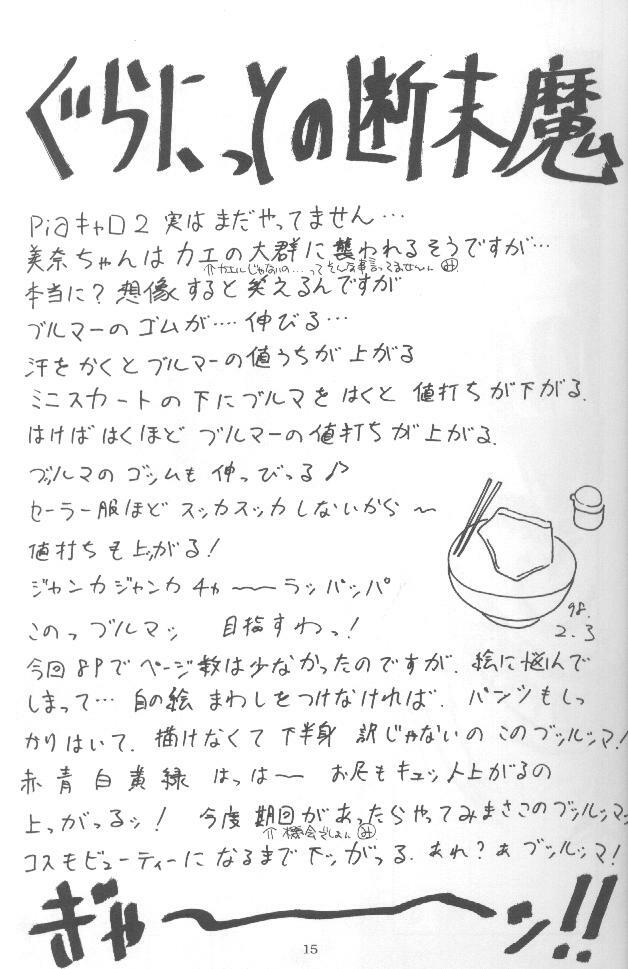 ぐらにっとの断末魔
Piaキャロ2 実はまだやってません…
美奈ちゃんは カエの大群に襲われるそうですが…
⇧カエルじゃないの…ってそんな事言ってませんん
本当に？想像すると笑えるんですが
ブルマーのゴムが…. 伸びる…
汗をかくとブルマーの値うちが上がる
ミニスカートの下にブルマをはくと 値打ちが下がる.
はけばはくほど ブルマーの値打ちが上がる.
ブッルマの ゴッムも 伸っびっる♪
セーラー服ほど スッカスッカしないから 〜
値打ちも上ッがる!
ジャンカジャンカチャ〜〜ラッパッパ
このっブルマッ 目指すわっ!
98.
2.3
今回8Pでページ数は少なかったのですが. 絵に悩んで
しまって… 自の絵 まわしをつけなければ. パンツもしっ
かりはいて. 描けなくて下半身 訳じゃないの このブッルッマ!
赤青白黄緑 はっは〜 お尻もキュット上がるの
上っがっるッ! 今度期回があったらやってみまさこのブッルッマッ
⇧機会でしょん
コスもビューティーになるまで下ッがっる. あれ？あ ブッルッマ!
ぎゃ〜〜ン!!
15